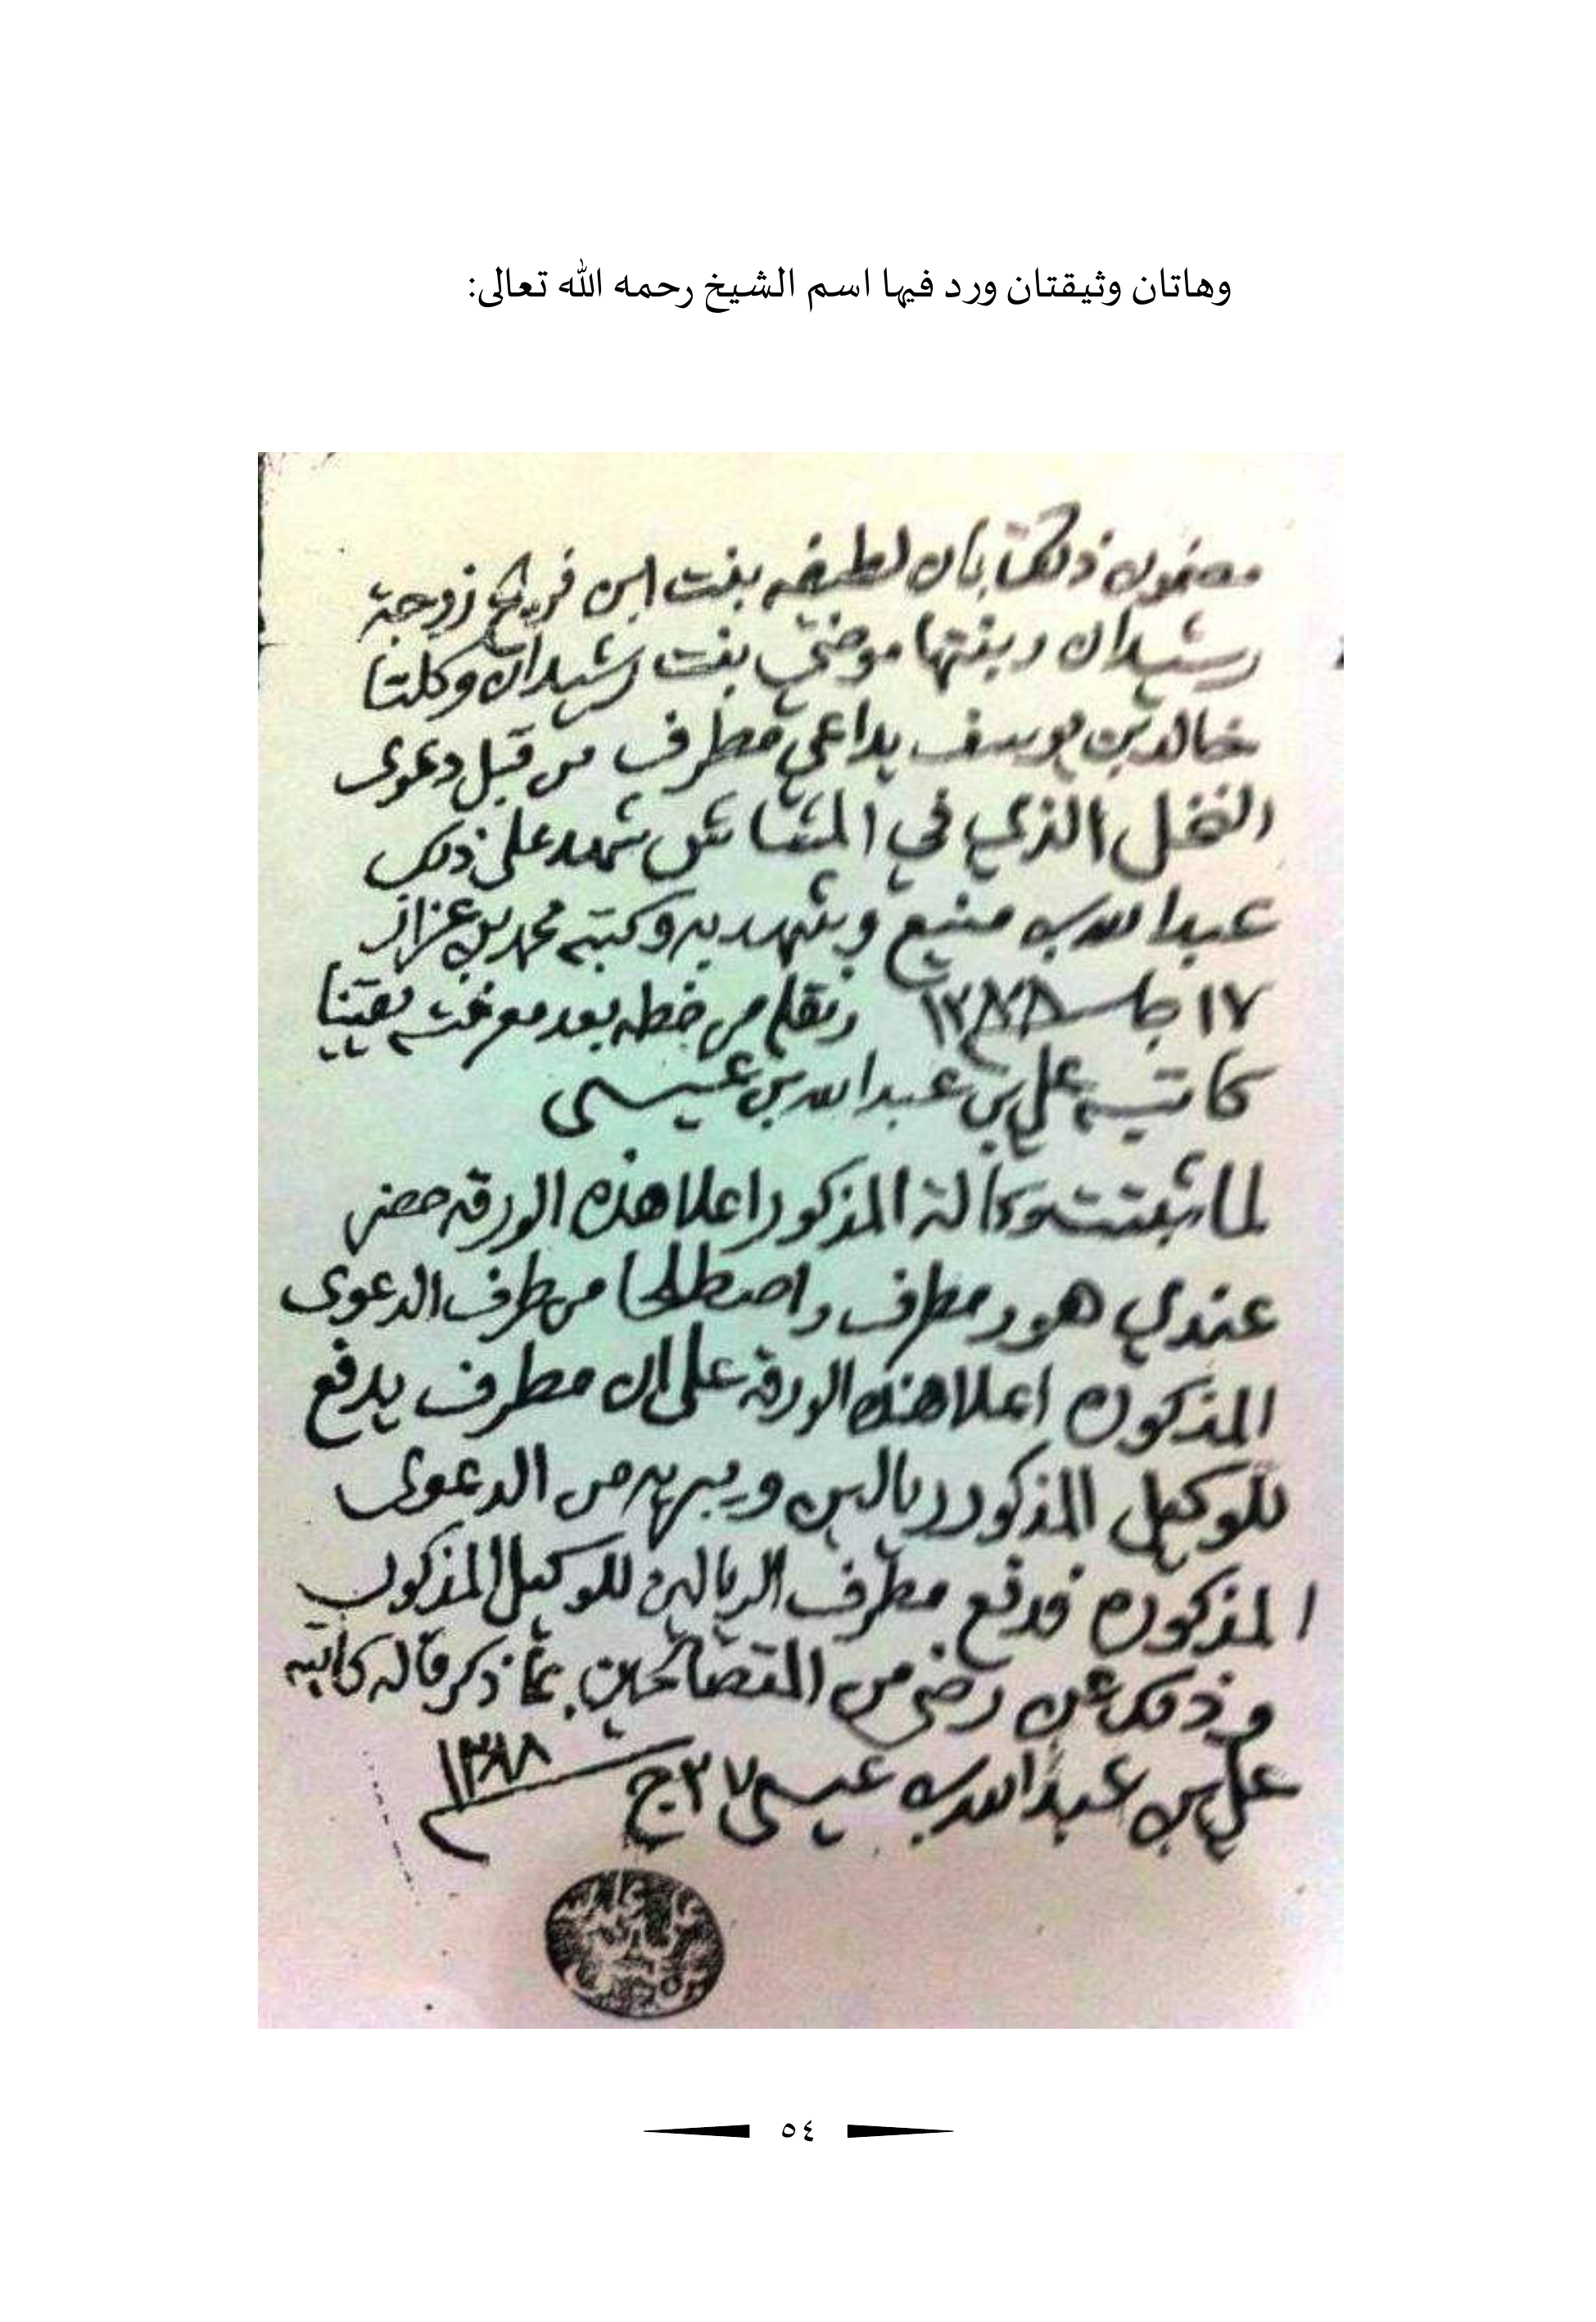 وهاتان وثيقتان ورد فيها اسم الشيخ رحمه الله تعالى:
مضمون ذلك بان لطيفه بنت ابن فريح زوجة
رشيدان وبنتها موضي بنت رشيدان وكلتا
خالد بن يوسف يداعي مطرف من قبل دعوى
النخل الذي في المشاش شهد على ذلك
عبدالله بن منيع وشهد به وكتبه محمد بن عزاز
١٧ جا سنة ونقله من خطه بعد معرفته يقينا
كاتبه علي بن عبدالله بن عيسى
لما ثبتت وكالة المذكور اعلا هذه الورقه حضر
عندي هو ومطرف واصطلحا من طرف الدعوى
المذكوره اعلا هذه الورقه على ان مطرف يدفع
للوكيل المذكور ريالين ويبريه من الدعوى
المذكوره فدفع مطرف الريالين للوكيل المذكور
وذلك عن رضى من المتصالحين بما ذكر قاله كاتبه
علي بن عبدالله بن عيسى
٥٤